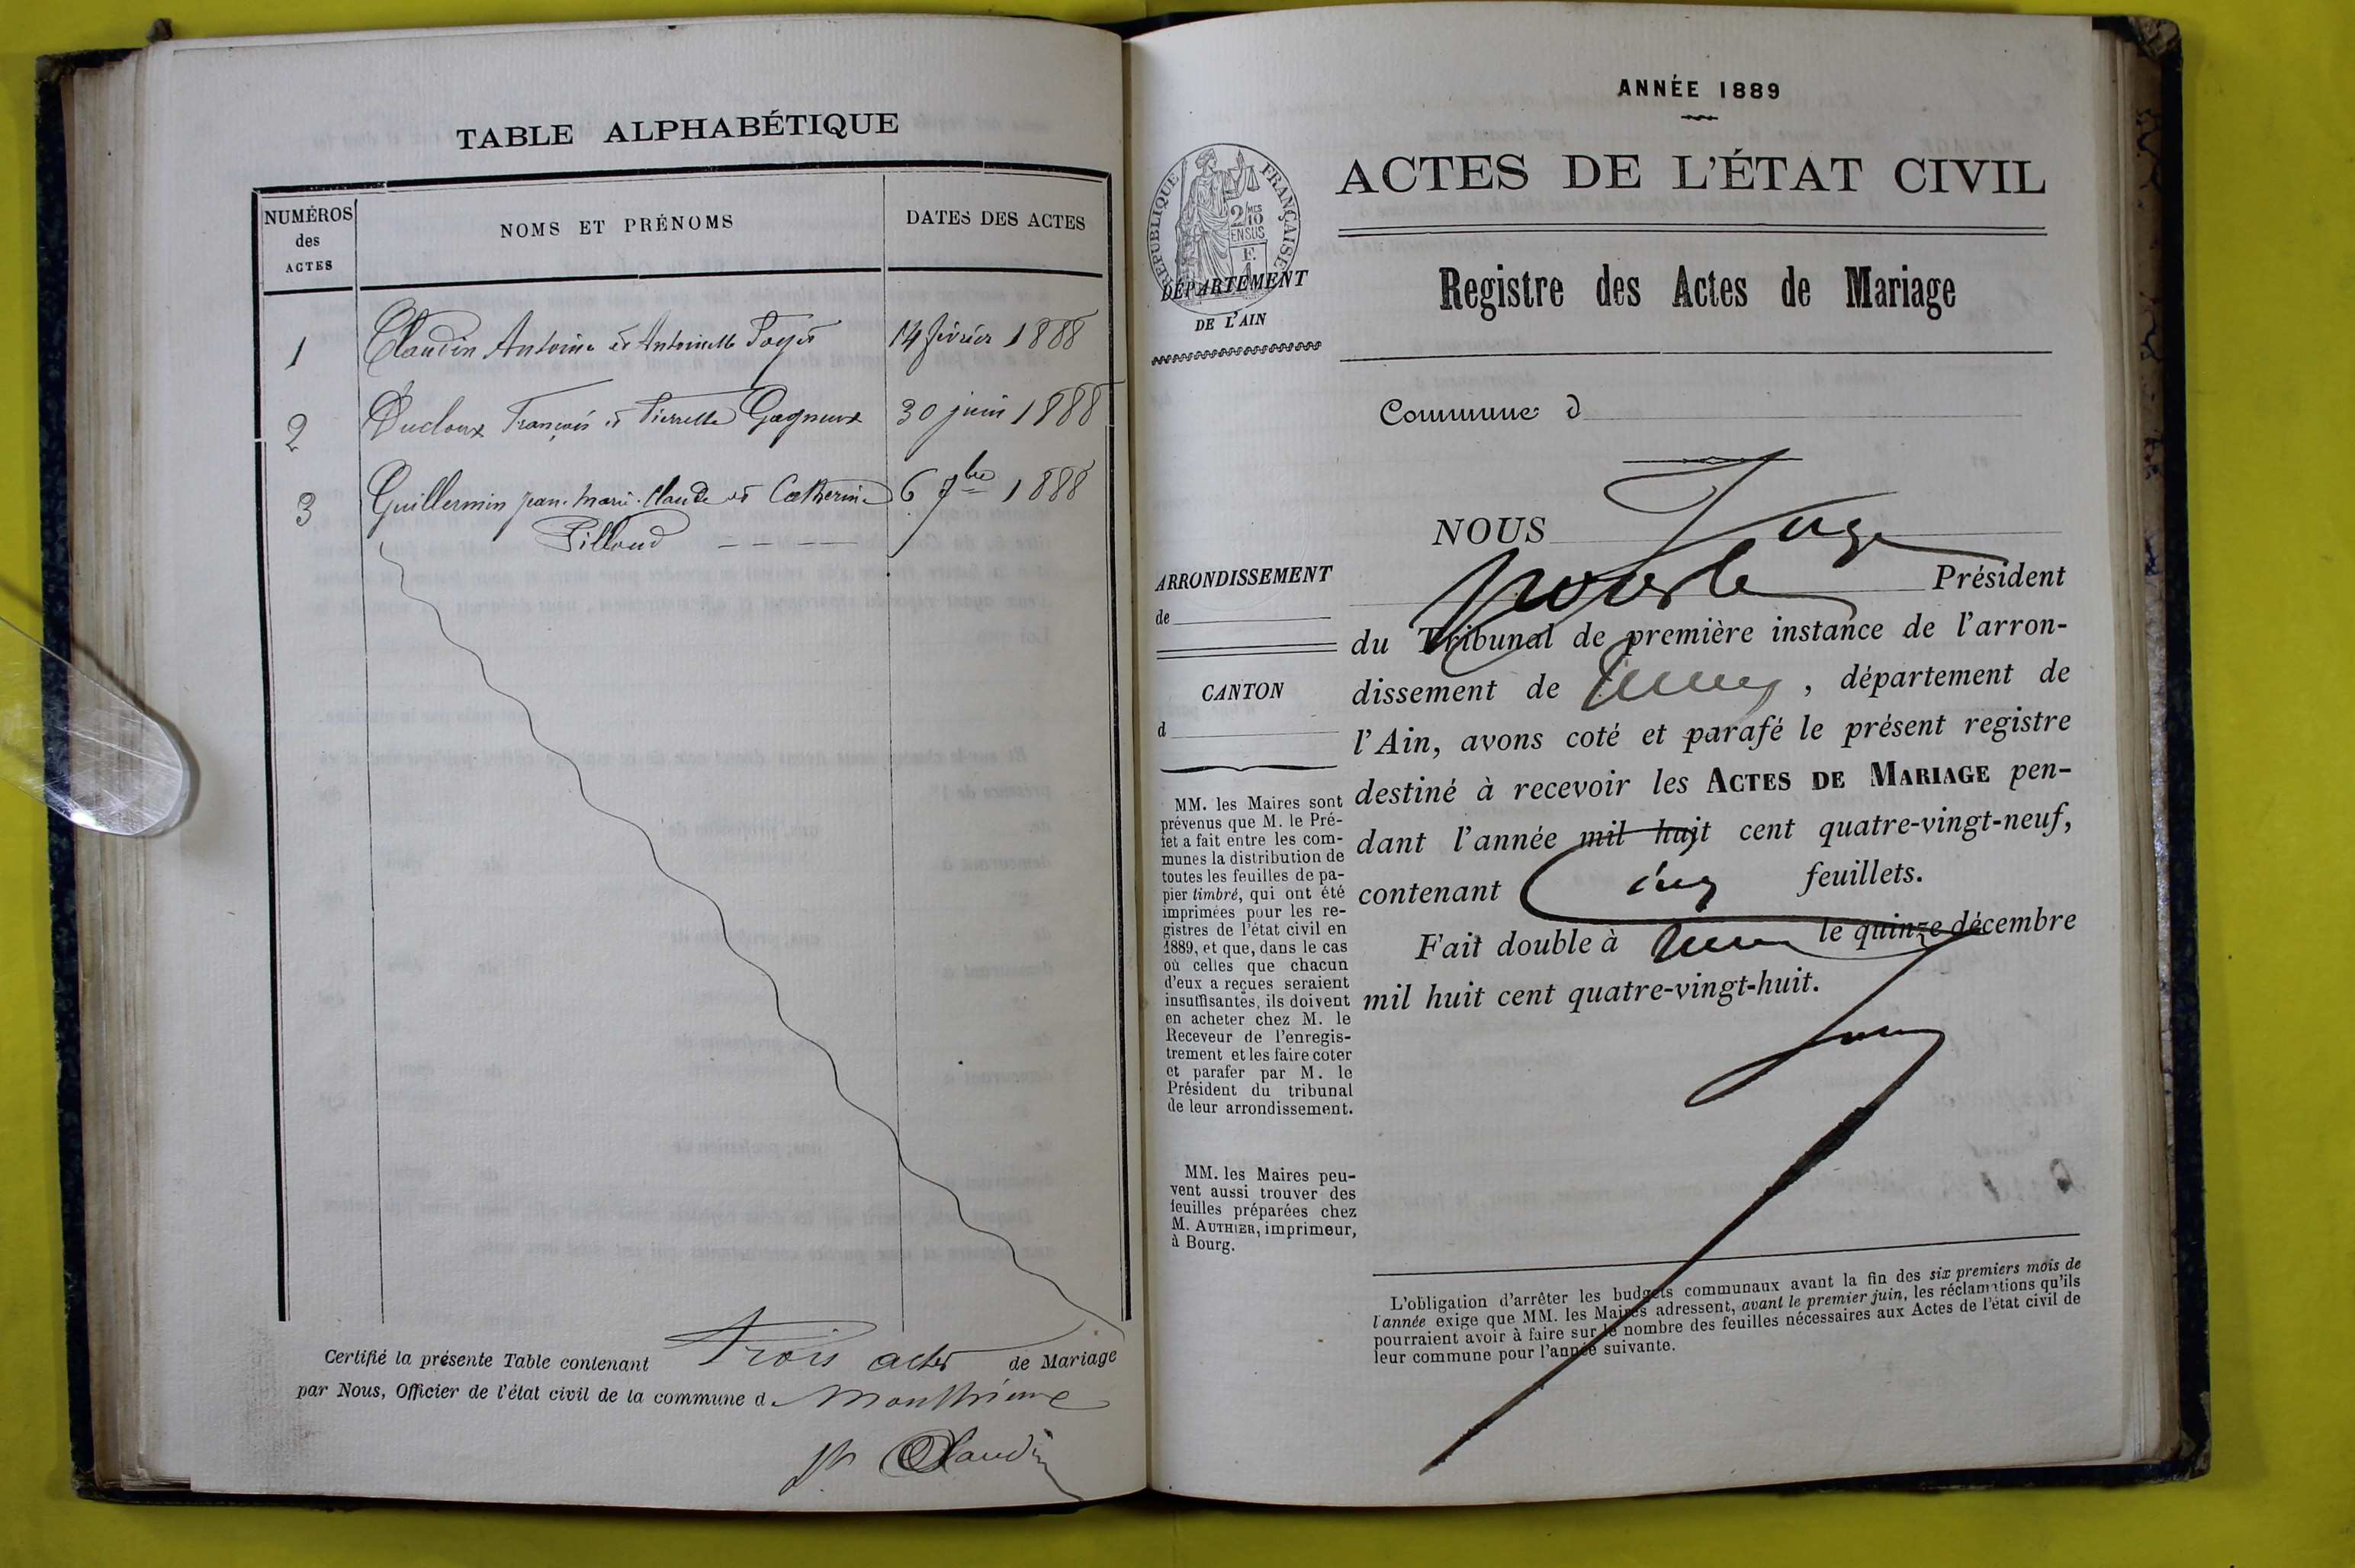 TABLE ALPHABÉTIQUE
NUMÉROS des ACTES
NOMS ET PRÉNOMS
DATES DES ACTES
1 Claudin Antoine et Antoinette 14 février 1888
2 Ducloux François et Pierrette Gagneux 30 juin 1888
3 Guillermin jean-marie-Claude et Catherine 6 7bre 1888
Pilloud
Certifié la présente Table contenant Trois actes de Mariage
par Nous, Officier de l'état civil de la commune d
Claudin
ANNÉE 1889
ACTES DE L'ÉTAT CIVIL
RÉPUBLIQUE FRANÇAISE
2/10MES
EN SUS
F.
DÉPARTEMENT
DE L'AIN
Registre des Actes de Mariage
Commune d
NOUS Juge
Président
ARRONDISSEMENT
de
CANTON
d
du Tribunal de première instance de l'arron-
dissement de , département de
l'Ain, avons coté et parafé le présent registre
destiné à recevoir les ACTES DE MARIAGE pen-
dant l'année mil huit cent quatre-vingt-neuf,
contenant Cinq feuillets.
Fait double à le quinze décembre
mil huit cent quatre-vingt-huit.
MM. les Maires sont
prévenus que M. le Pré-
fet a fait entre les com-
munes la distribution de
toutes les feuilles de pa-
pier timbré, qui ont été
imprimées pour les re-
gistres de l'état civil en
1889, et que, dans le cas
où celles que chacun
d'eux a reçues seraient
insuffisantes, ils doivent
en acheter chez M. le
Receveur de l'enregis-
trement et les faire coter
et parafer par M. le
Président du tribunal
de leur arrondissement.
MM. les Maires peu-
vent aussi trouver des
feuilles préparées chez
M. AUTHIER, imprimeur,
à Bourg.
L'obligation d'arrêter les budgets communaux avant la fin des six premiers mois de
l'année exige que MM. les Maires adressent, avant le premier juin, les réclamations qu'ils
pourraient avoir à faire sur le nombre des feuilles nécessaires aux Actes de l'état civil de
leur commune pour l'année suivante.